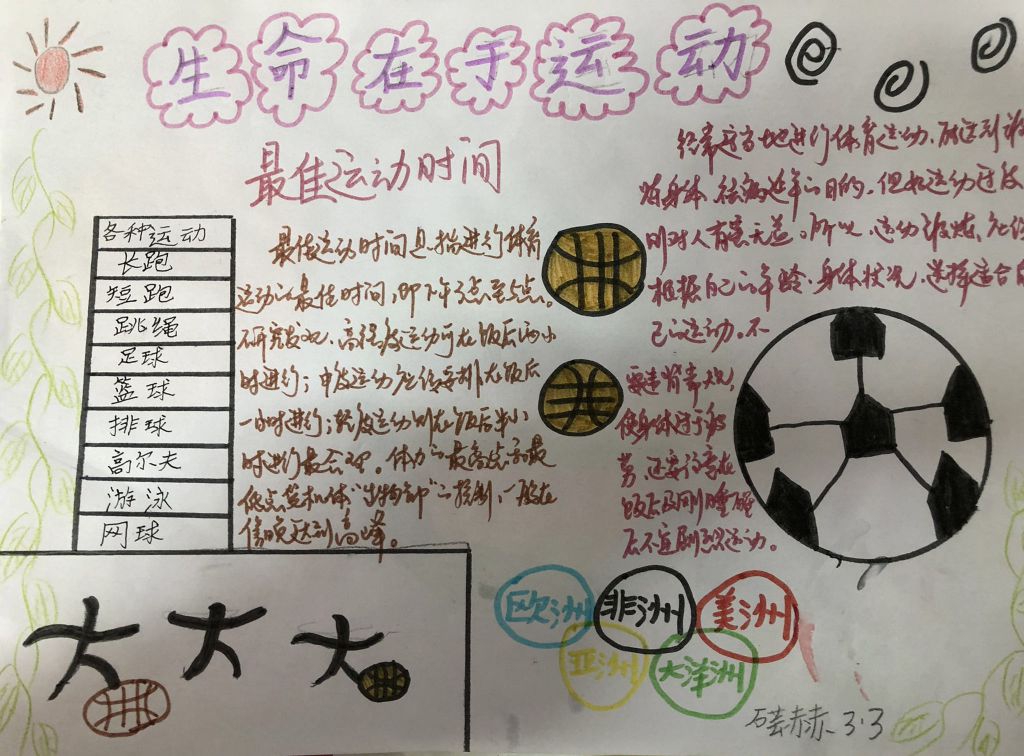 生命在于运动
最佳运动时间
各种运动
长跑
短跑
跳绳
足球
篮球
排球
高尔夫
游泳
网球
最佳运动时间是指进行体育
运动的最佳时间,即下午3点至5点。
研究发现,高强度运动可在饭后两小
时进行;中度运动应该安排在饭后
一小时进行;轻度运动则在饭后半小
时进行最合理。体力的最高点和最
低点受机体“生物钟”的控制,一般在
傍晚达到高峰。
经常适当地进行体育运动,能达到锻
炼身体、延年的目的。但如运动过度
则对人有害无益。所以,运动锻炼,应
根据自己的年龄、身体状况,选择适合自
己的运动。不
要违背常规,
使身体过于疲
劳,还要注意在
饭后及刚睡醒
后不宜剧烈运动。
欧洲
非洲
美洲
亚洲
大洋洲
赫赤 3.3